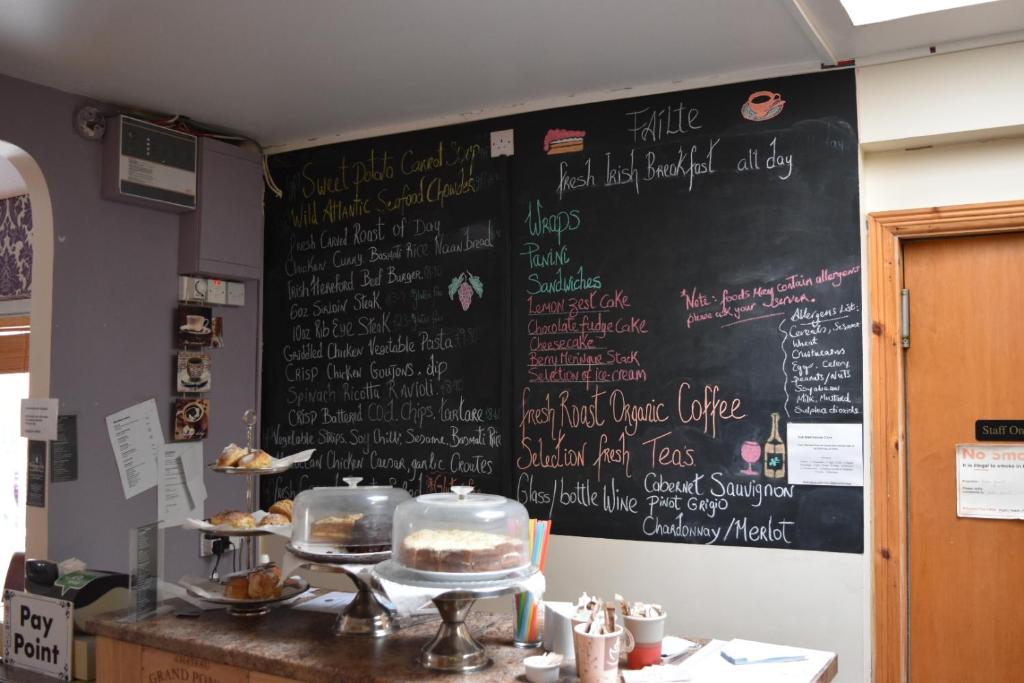 Sweet Potato Carrot Soup
Wild Atlantic Seafood Chowder
Fresh Carved Roast of Day
Chicken Curry, Basmati Rice Naan bread
Irish Hereford Beef Burger
6oz Sirloin Steak
10oz Rib Eye Steak
Griddled Chicken Vegetable Pasta
Crisp Chicken Goujons, dip
Spinach Ricotta Ravioli
Crisp Battered Cod, Chips, tartare
Vegetable Strips, Soy Chilli, Sesame, Basmati Rice
Chicken Caesar, garlic Croutes
FAILTE
fresh Irish Breakfast all day
Wraps
Panini
Sandwiches
Lemon zest cake
Chocolate fudge cake
Cheesecake
Berry Meringue Stack
Selection of ice-cream
fresh Roast Organic Coffee
Selection fresh Teas
Glass/bottle Wine
Cabernet Sauvignon
Pinot Grigio
Chardonnay/Merlot
*Note: foods may contain allergens
please ask your server.
Allergens List:
Cereals, Sesame
Wheat
Crustaceans
Egg, Celery
Peanuts/Nuts
Soyabean
Milk, Mustard
Sulphur dioxide
Staff On
No Smo
It is illegal to smoke in
Pay
Point
GRAND